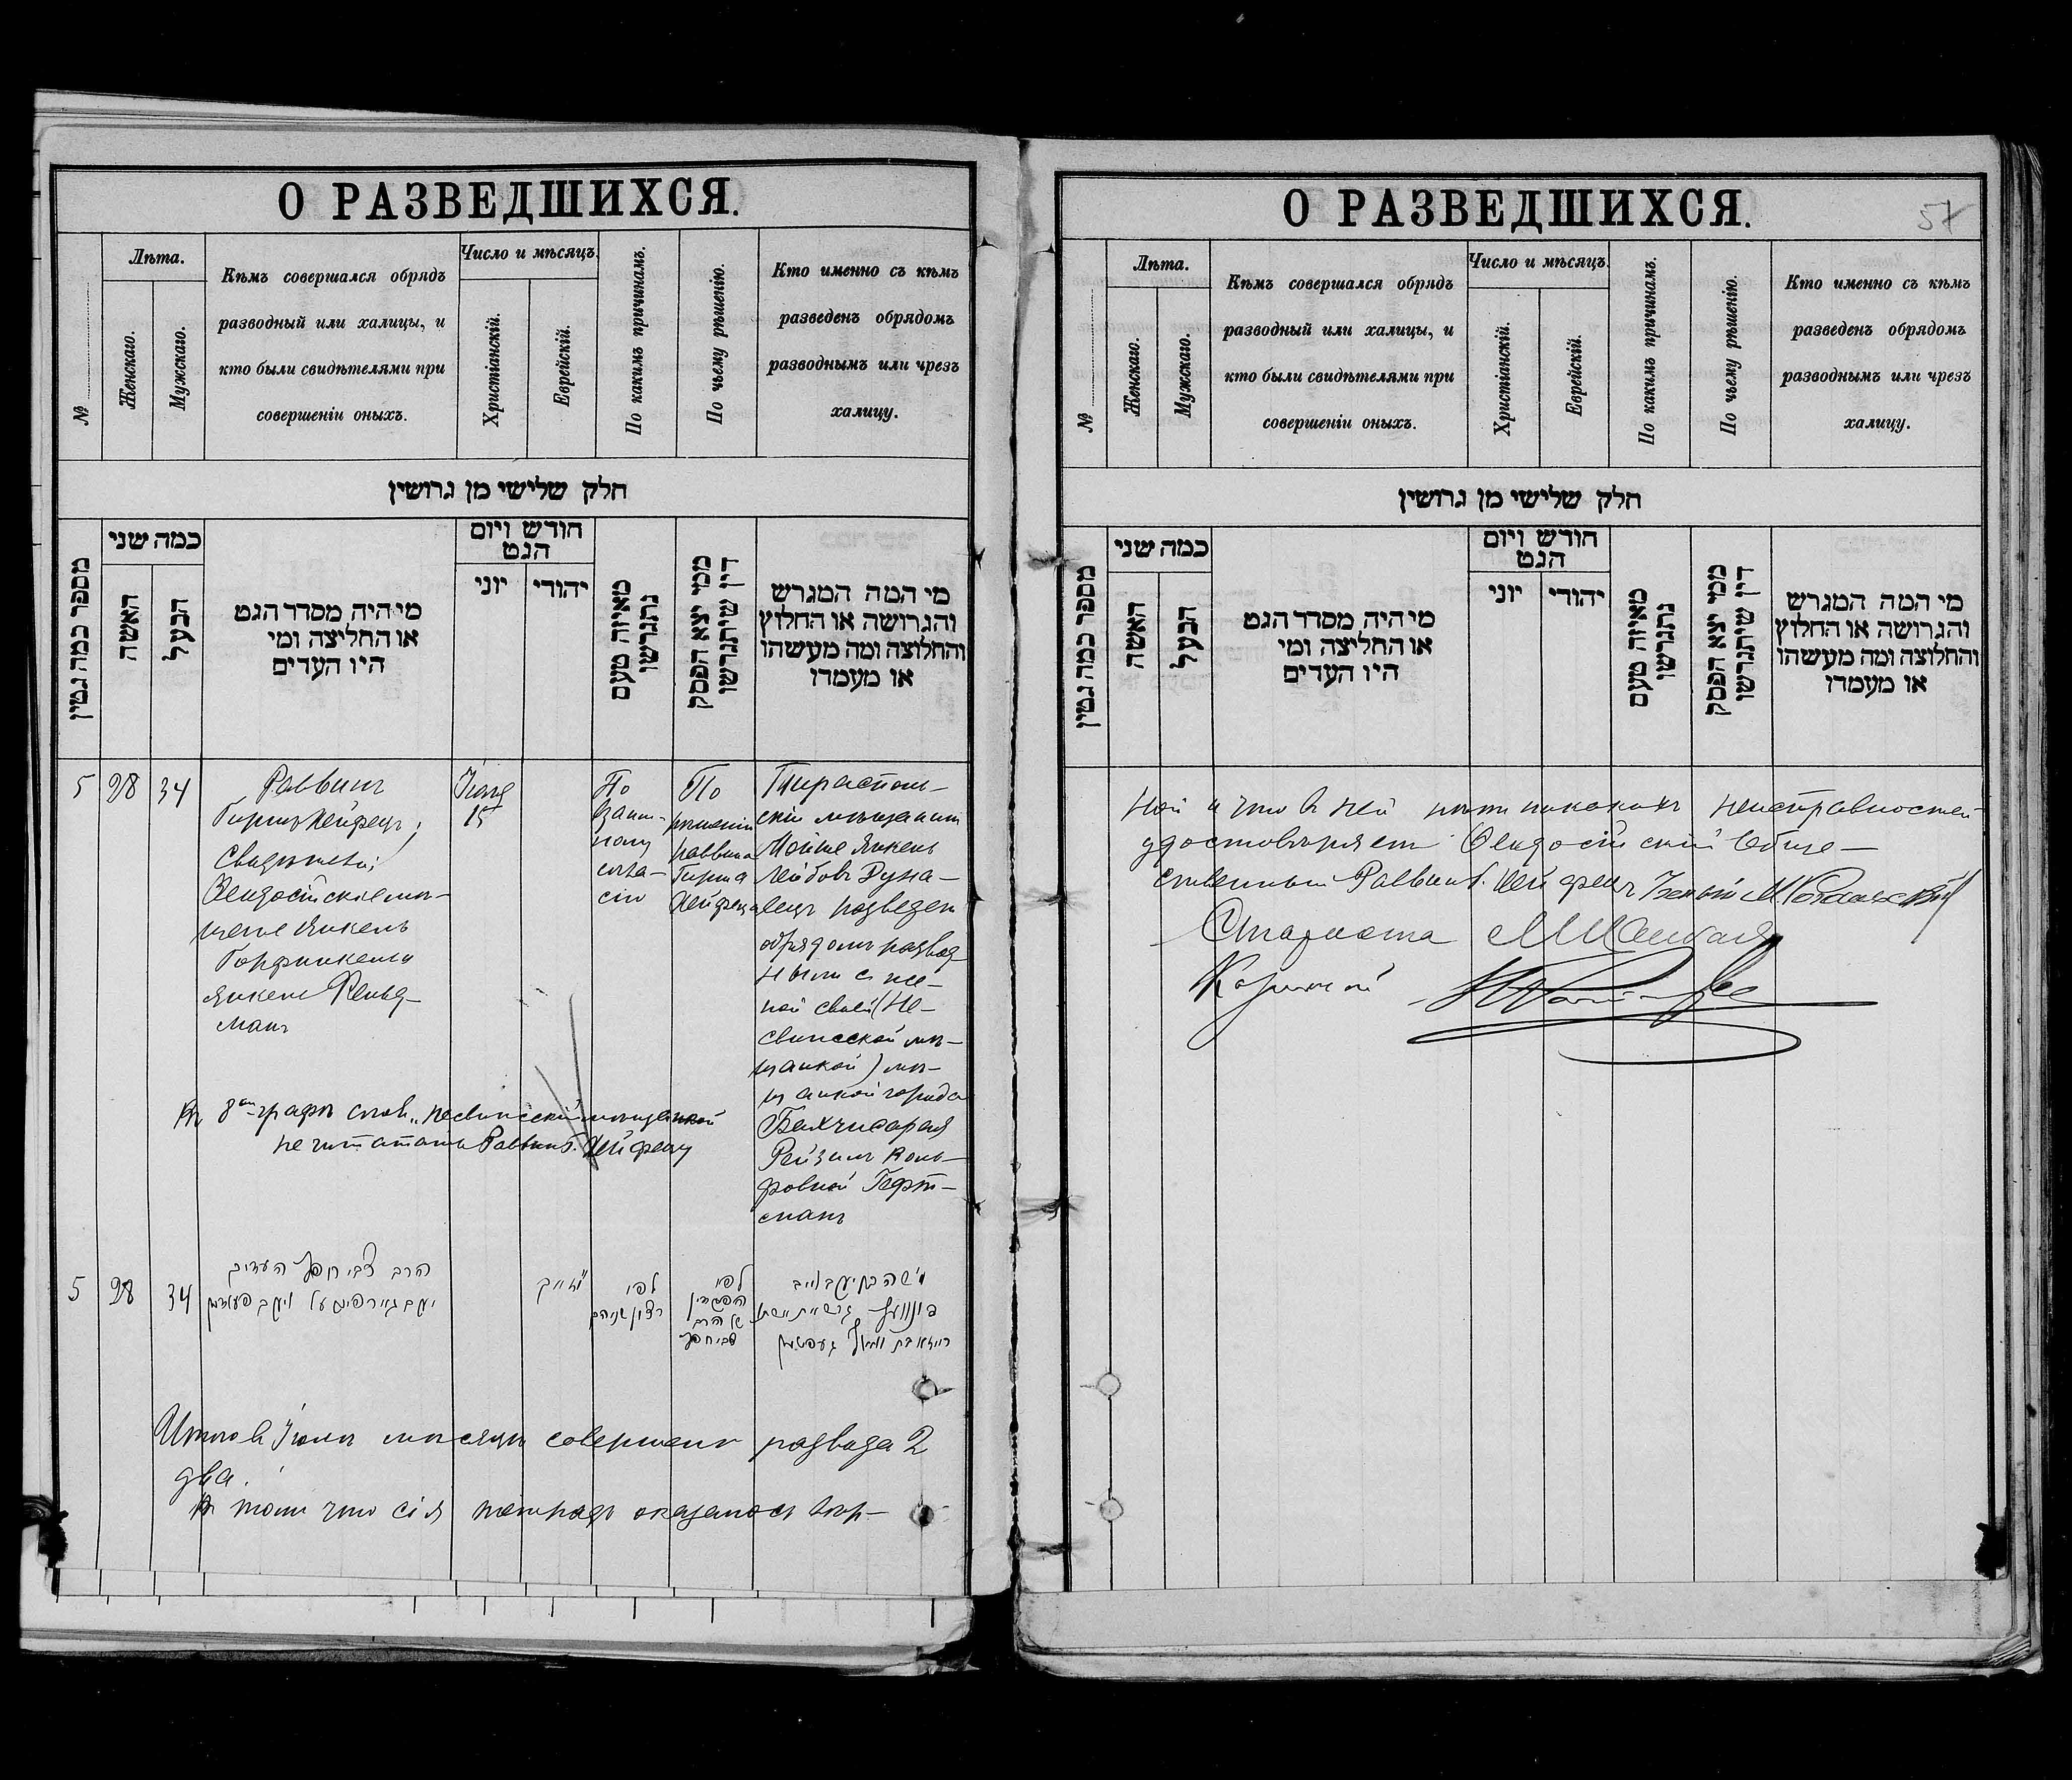 О РАЗВЕДШИХСЯ.
№
Лѣта.
Женскаго.
Мужскаго.
Кѣмъ совершался обрядъ
разводный или халицы, и
кто были свидѣтелями при
совершеніи оныхъ.
Число и мѣсяцъ.
Христіанскій.
Еврейскій.
По какимъ причинамъ.
По чьему рѣшенію.
Кто именно съ кѣмъ
разведенъ обрядомъ
разводнымъ или чрезъ
халицу.
חלק שלישי מן גרושין
מספר כמה גטין
כמה שני
האשה
הבעל
מי היה מסדר הגט
או החליצה ומי
היו העדים
חודש ויום
הגט
יוני
יהודי
מאיזה טעם
נתגרשו
ממי יצא הפסק
דין שיתגרשו
מי המה המגרש
והגרושה או החלוץ
והחלוצה ומה מעשהו
או מעמדו
5
28
34
Раввинъ
Гиршъ Хейфецъ;
Свидѣтели:
Ѳеодосійскіе мѣ-
щане Янкель
Горфинкель и
Янкель Фельд-
манъ
15
По
взаим-
ному
согла-
сію
По
рѣшенію
раввина
Гирша
Хейфеца
Тирасполь-
скій мѣщанинъ
Мойше Янкель
Лейбовъ Дуна-
евцъ разведенъ
обрядомъ развод-
нымъ съ же-
ной своей (Не-
свижской мѣ-
щанкой) мѣ-
щанкой города
Бахчисарая
Рейзилъ Воль-
фовной Гефт-
манъ
Въ 8ой графѣ слов. „несвижской мѣщанкой
не читать Раввинъ Г. Хейфецъ
5
28
34
הרב צבי חפץ העדים
לפי
רצון שניהם
לפי
הפסק דין
של הרב
צבי חפץ
Итого въ Іюнѣ мѣсяцѣ совершено развода 2
два.
Въ томъ что сія тетрадь оказалась вѣр-
О РАЗВЕДШИХСЯ.
57
№
Лѣта.
Женскаго.
Мужскаго.
Кѣмъ совершался обрядъ
разводный или халицы, и
кто были свидѣтелями при
совершеніи оныхъ.
Число и мѣсяцъ.
Христіанскій.
Еврейскій.
По какимъ причинамъ.
По чьему рѣшенію.
Кто именно съ кѣмъ
разведенъ обрядомъ
разводнымъ или чрезъ
халицу.
חלק שלישי מן גרושין
מספר כמה גטין
כמה שני
האשה
הבעל
מי היה מסדר הגט
או החליצה ומי
היו העדים
חודש ויום
הגט
יוני
יהודי
מאיזה טעם
נתגרשו
ממי יצא הפסק
דין שיתגרשו
מי המה המגרש
והגרושה או החלוץ
והחלוצה ומה מעשהו
או מעמדו
ной и что въ ней нѣтъ никакихъ неисправностей
удостовѣряетъ Ѳеодосійскій Обще-
ственный Раввинъ Г. Хейфецъ
Староста